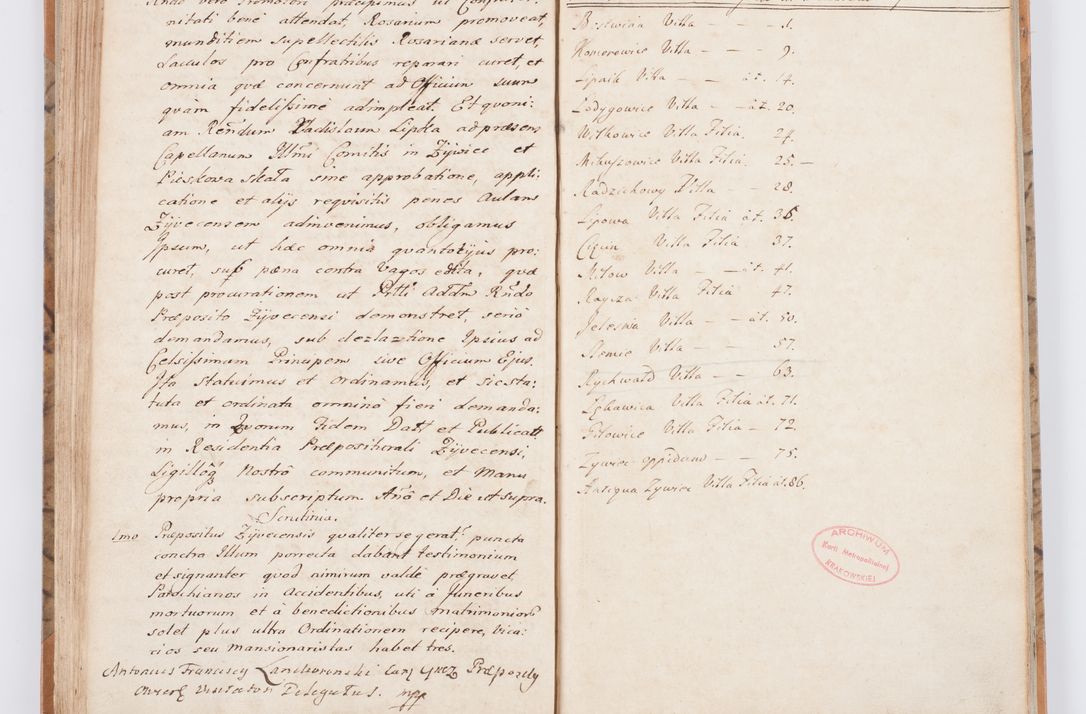 nitati bene attendat, Rosarium promoveat,
munditiem supellectilis Rosarianæ servet,
Sacculos pro Confratribus reparari curet, et
omnia quæ concernunt ad Officium suum
quàm fidelissime adimpleat. Et quoni:
am Rendum Vadislaum Lipka ad præsens
Capellanum Illmi Comitis in Zywiec et
Pieskowa Skała sine approbatione, appli:
catione et alijs requisitis penes Aulam
Zÿvecensem adinvenimus, obligamus
Ipsum, ut hæc omnia quantotijus pro:
curet, sub pæna contra Vagos edita, quæ
post procurationem ut Prtti Addm Rndo
Præposito Zÿvecensi demonstret, seriò
demandamus, sub delatione Ipsius ad
Celsissimum Principem sive Officium Ejus.
Ita statuimus et ordinamus, et sic sta:
tuta et ordinata omninò fieri demanda:
mus, in Quorum Fidem Datt et Publicatt
in Residentia Præpositurali Zÿvecensi,
Sigillòq Nostrô communitum, et Manu
propria subscriptum Anô et Die ut supra.
Scrutinia.
1mo Præpositus Zÿvecensis qualiter se gerat puncta
contra Illum porrecta dabant testimonium
et signanter quod nimirum valdè prægravet
Parochianos in Accidentibus, uti à Funeribus
mortuorum et à benedictionibus matrimoniorũ
solet plus ultra Ordinationem recipere, Vica:
rios seu Mansionaristas habet tres.
Antonius Franciscy
Præpozyty
Visitator Delegatus. mpp
Bestwina Villa — — 1.
Komorowice Villa — — 9.
Lipnik Villa — — át. 14.
Lodygowice Villa — át. 20.
Wilkowice Villa Filia. 24.
Mikuszowice Villa Filia. 25. —
Radziechowy Villa — — 28.
Lipowa Villa Filia át. 36.
Cięcina Villa Filia 37.
Milow Villa — — át. 41.
Raycza Villa Filia 47.
Jelesnia Villa — — át. 50.
Slemie Villa — — 57.
Rychwałd Villa — — 63.
Lękawica Villa Filia át. 71.
Pitowice Villa Filia — 72.
Zywiec oppidum — — 75.
Antiqua Zywiec Villa Filia át. 86.
ARCHIWUM
Kurii Metropolitalnej
KRAKOWSKIEJ